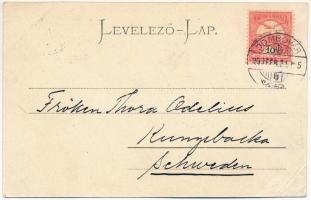 LEVELEZŐ-LAP.
ZOMBOLYA
Fröken Thora Odelius
Kungsbacka
Schweden